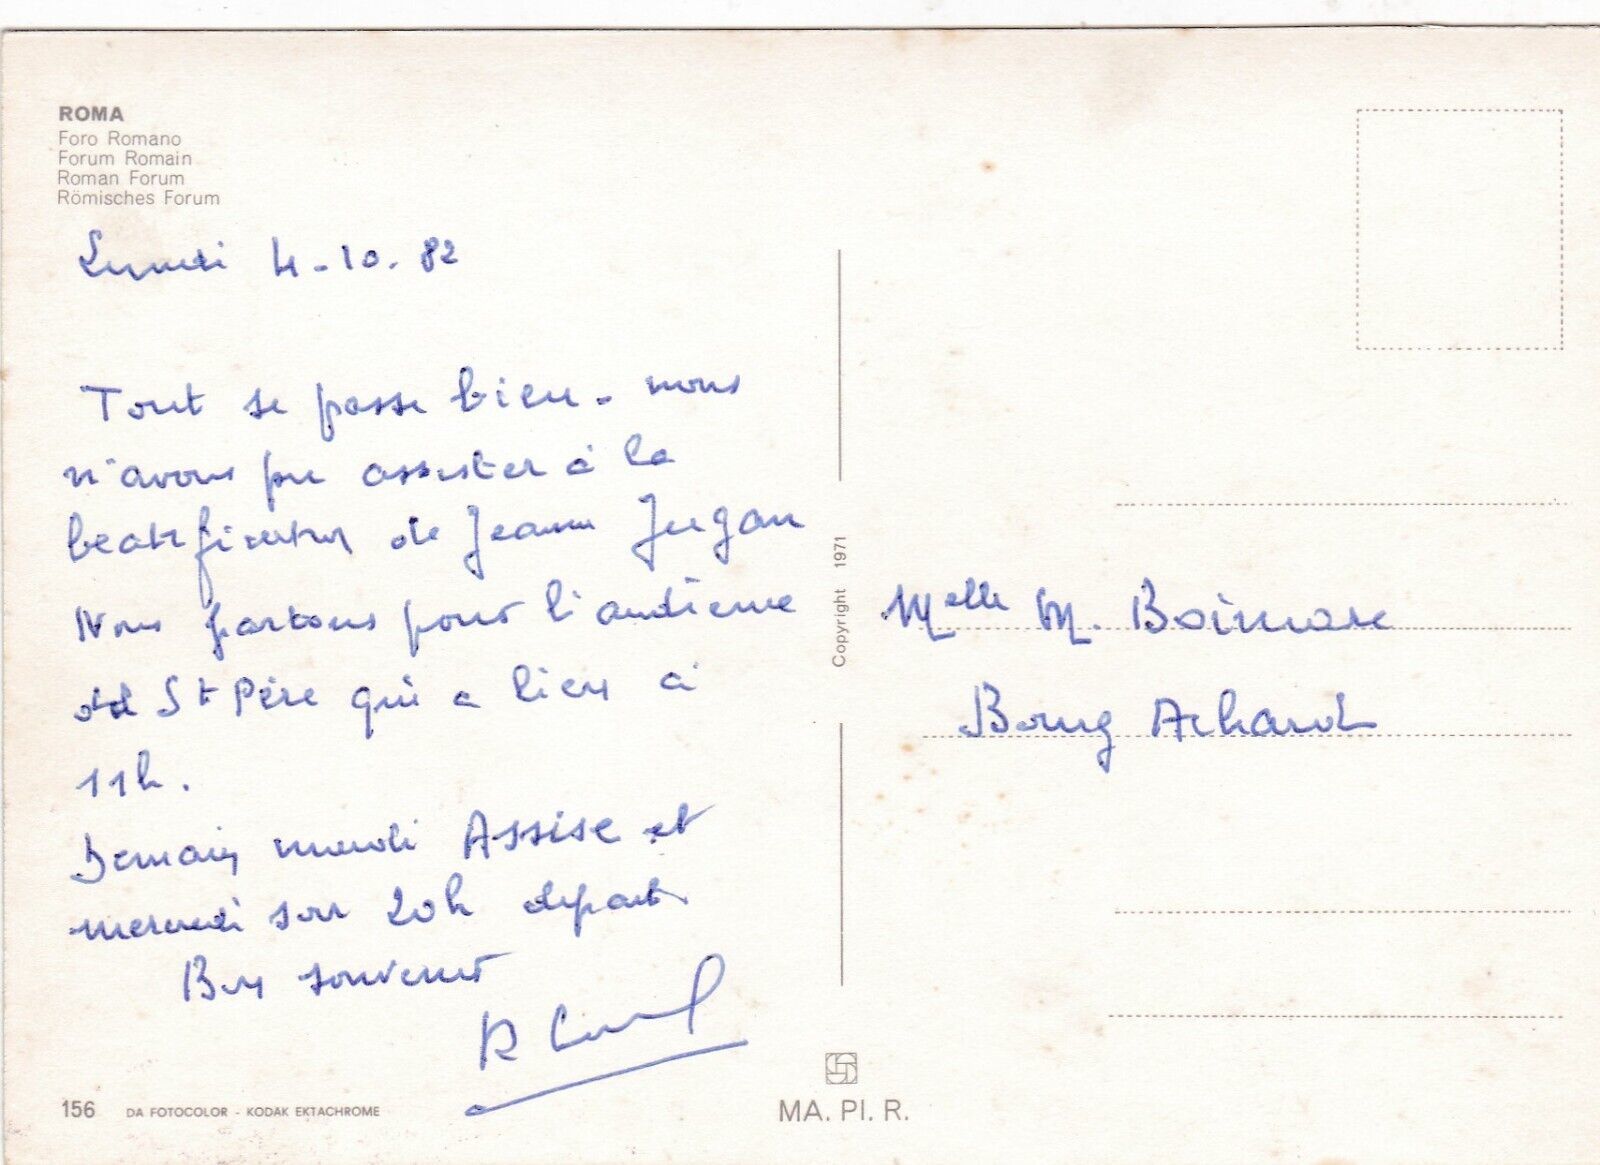 ROMA
Foro Romano
Forum Romain
Roman Forum
Römisches Forum
Lundi 4-10.82
Tout se passe bien - nous
n'avons pu assister à la
beatification de Jeanne Jugan
Nous partons pour l'audience
du St Père qui a lieu à
11h.
Demain mardi Assise et
mercredi soir 20h départ
Bon souvenir
R
Copyright 1971
Melle M. Boimare
Bourg Achard
156 DA FOTOCOLOR - KODAK EKTACHROME
MA. PI. R.